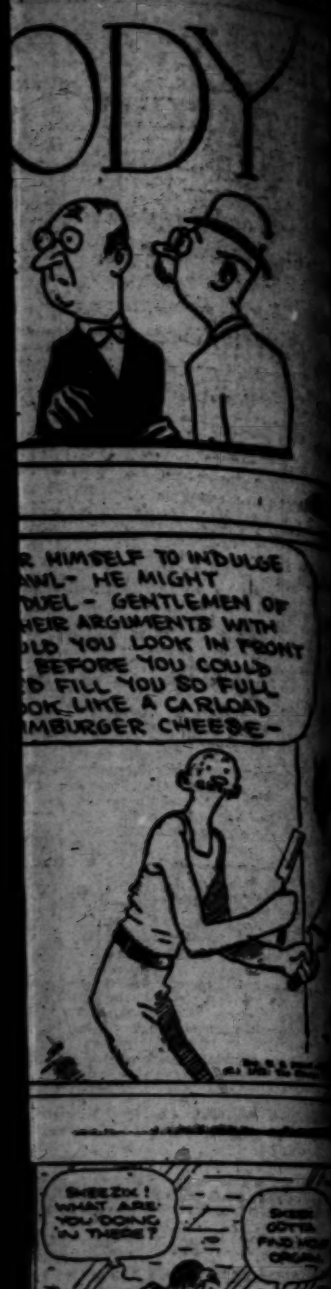 ODY
R HIMSELF TO INDULGE
AWL- HE MIGHT
DUEL- GENTLEMEN OF
HEIR ARGUMENTS WITH
ULD YOU LOOK IN FRONT
BEFORE YOU COULD
'D FILL YOU SO FULL
OOK LIKE A CARLOAD
IMBURGER CHEESE-
SKEEZIX!
WHAT ARE
YOU DOING
IN THERE?
GOTTA
FIND